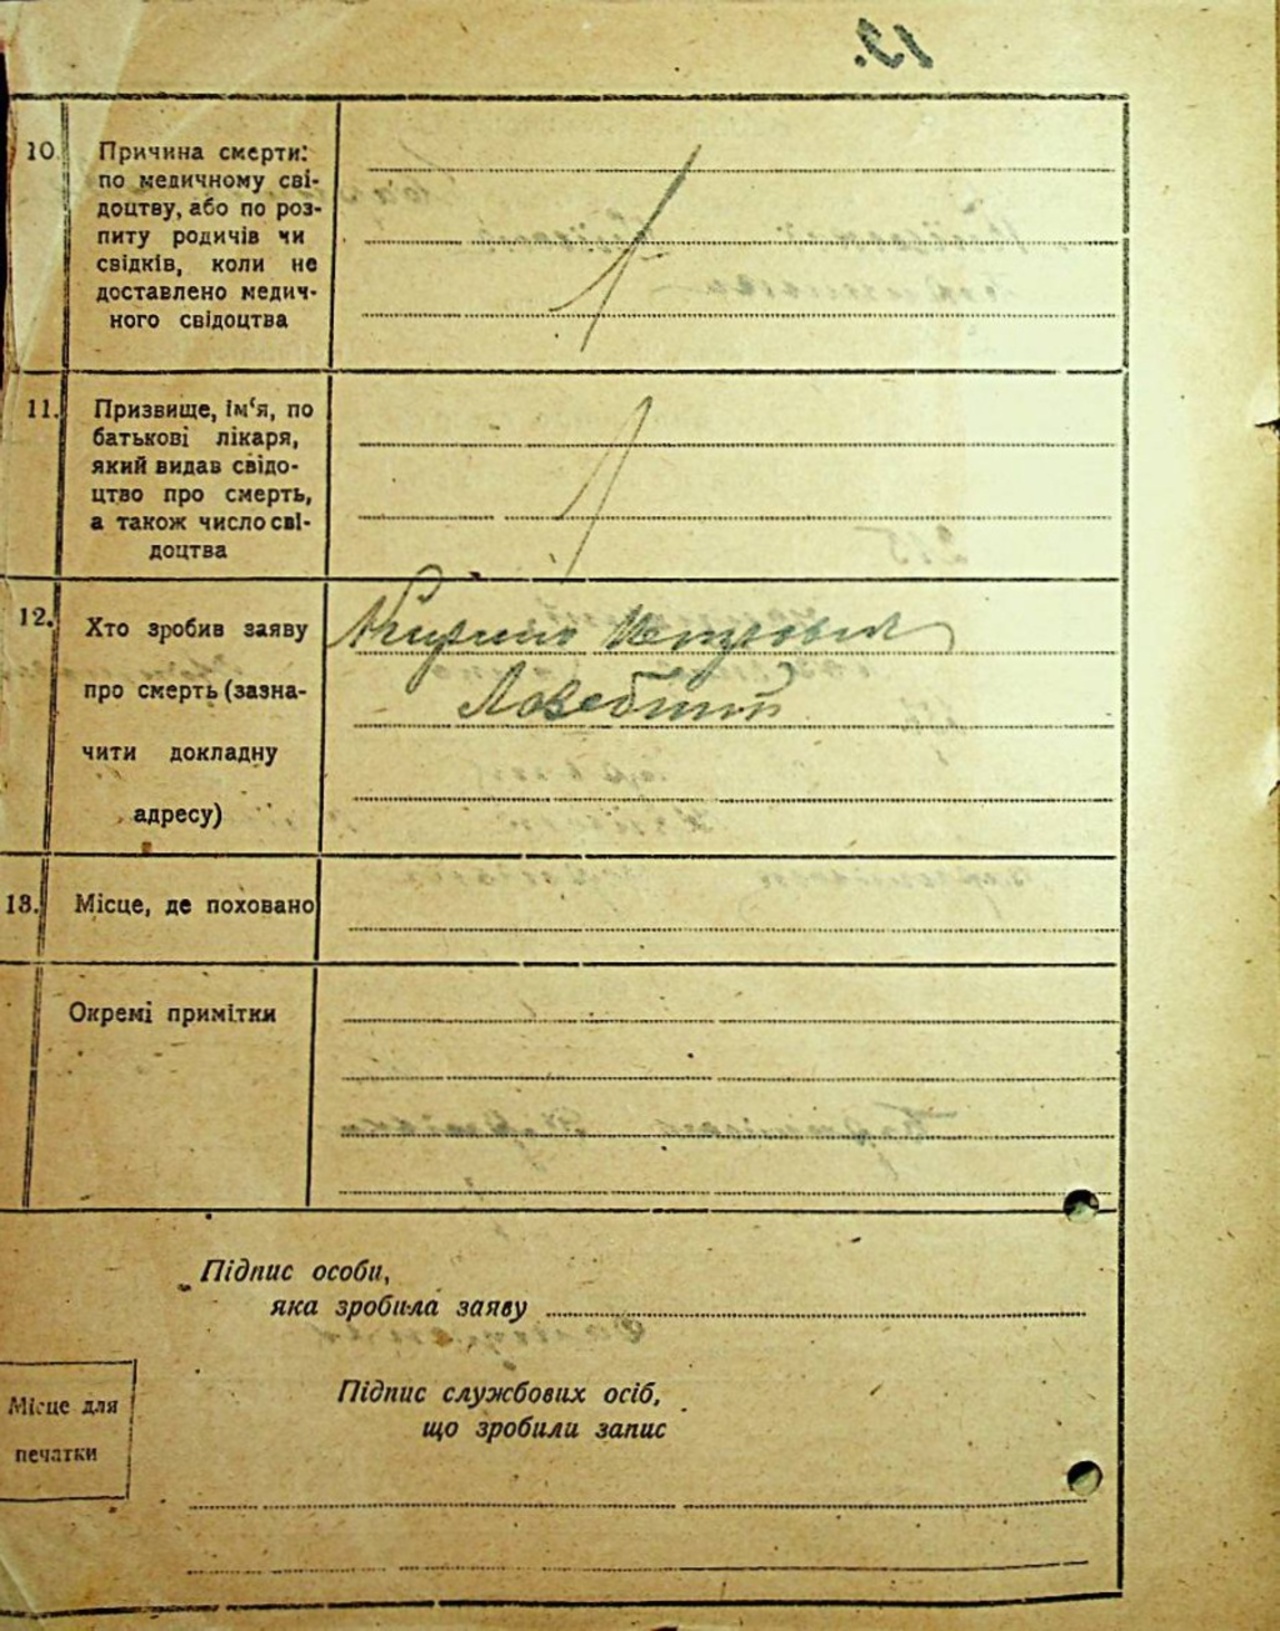 10.
Причина смерти:
по медичному сві-
доцтву, або по роз-
питу родичів чи
свідків, коли не
доставлено медич-
ного свідоцтва
11.
Призвище, ім‘я, по
батькові лікаря,
який видав свідо-
цтво про смерть,
а також число сві-
доцтва
12.
Хто зробив заяву
про смерть (зазна-
чити докладну
адресу)
13.
Місце, де поховано
Окремі примітки
Підпис особи,
яка зробила заяву
Підпис службових осіб,
що зробили запис
Місце для
печатки